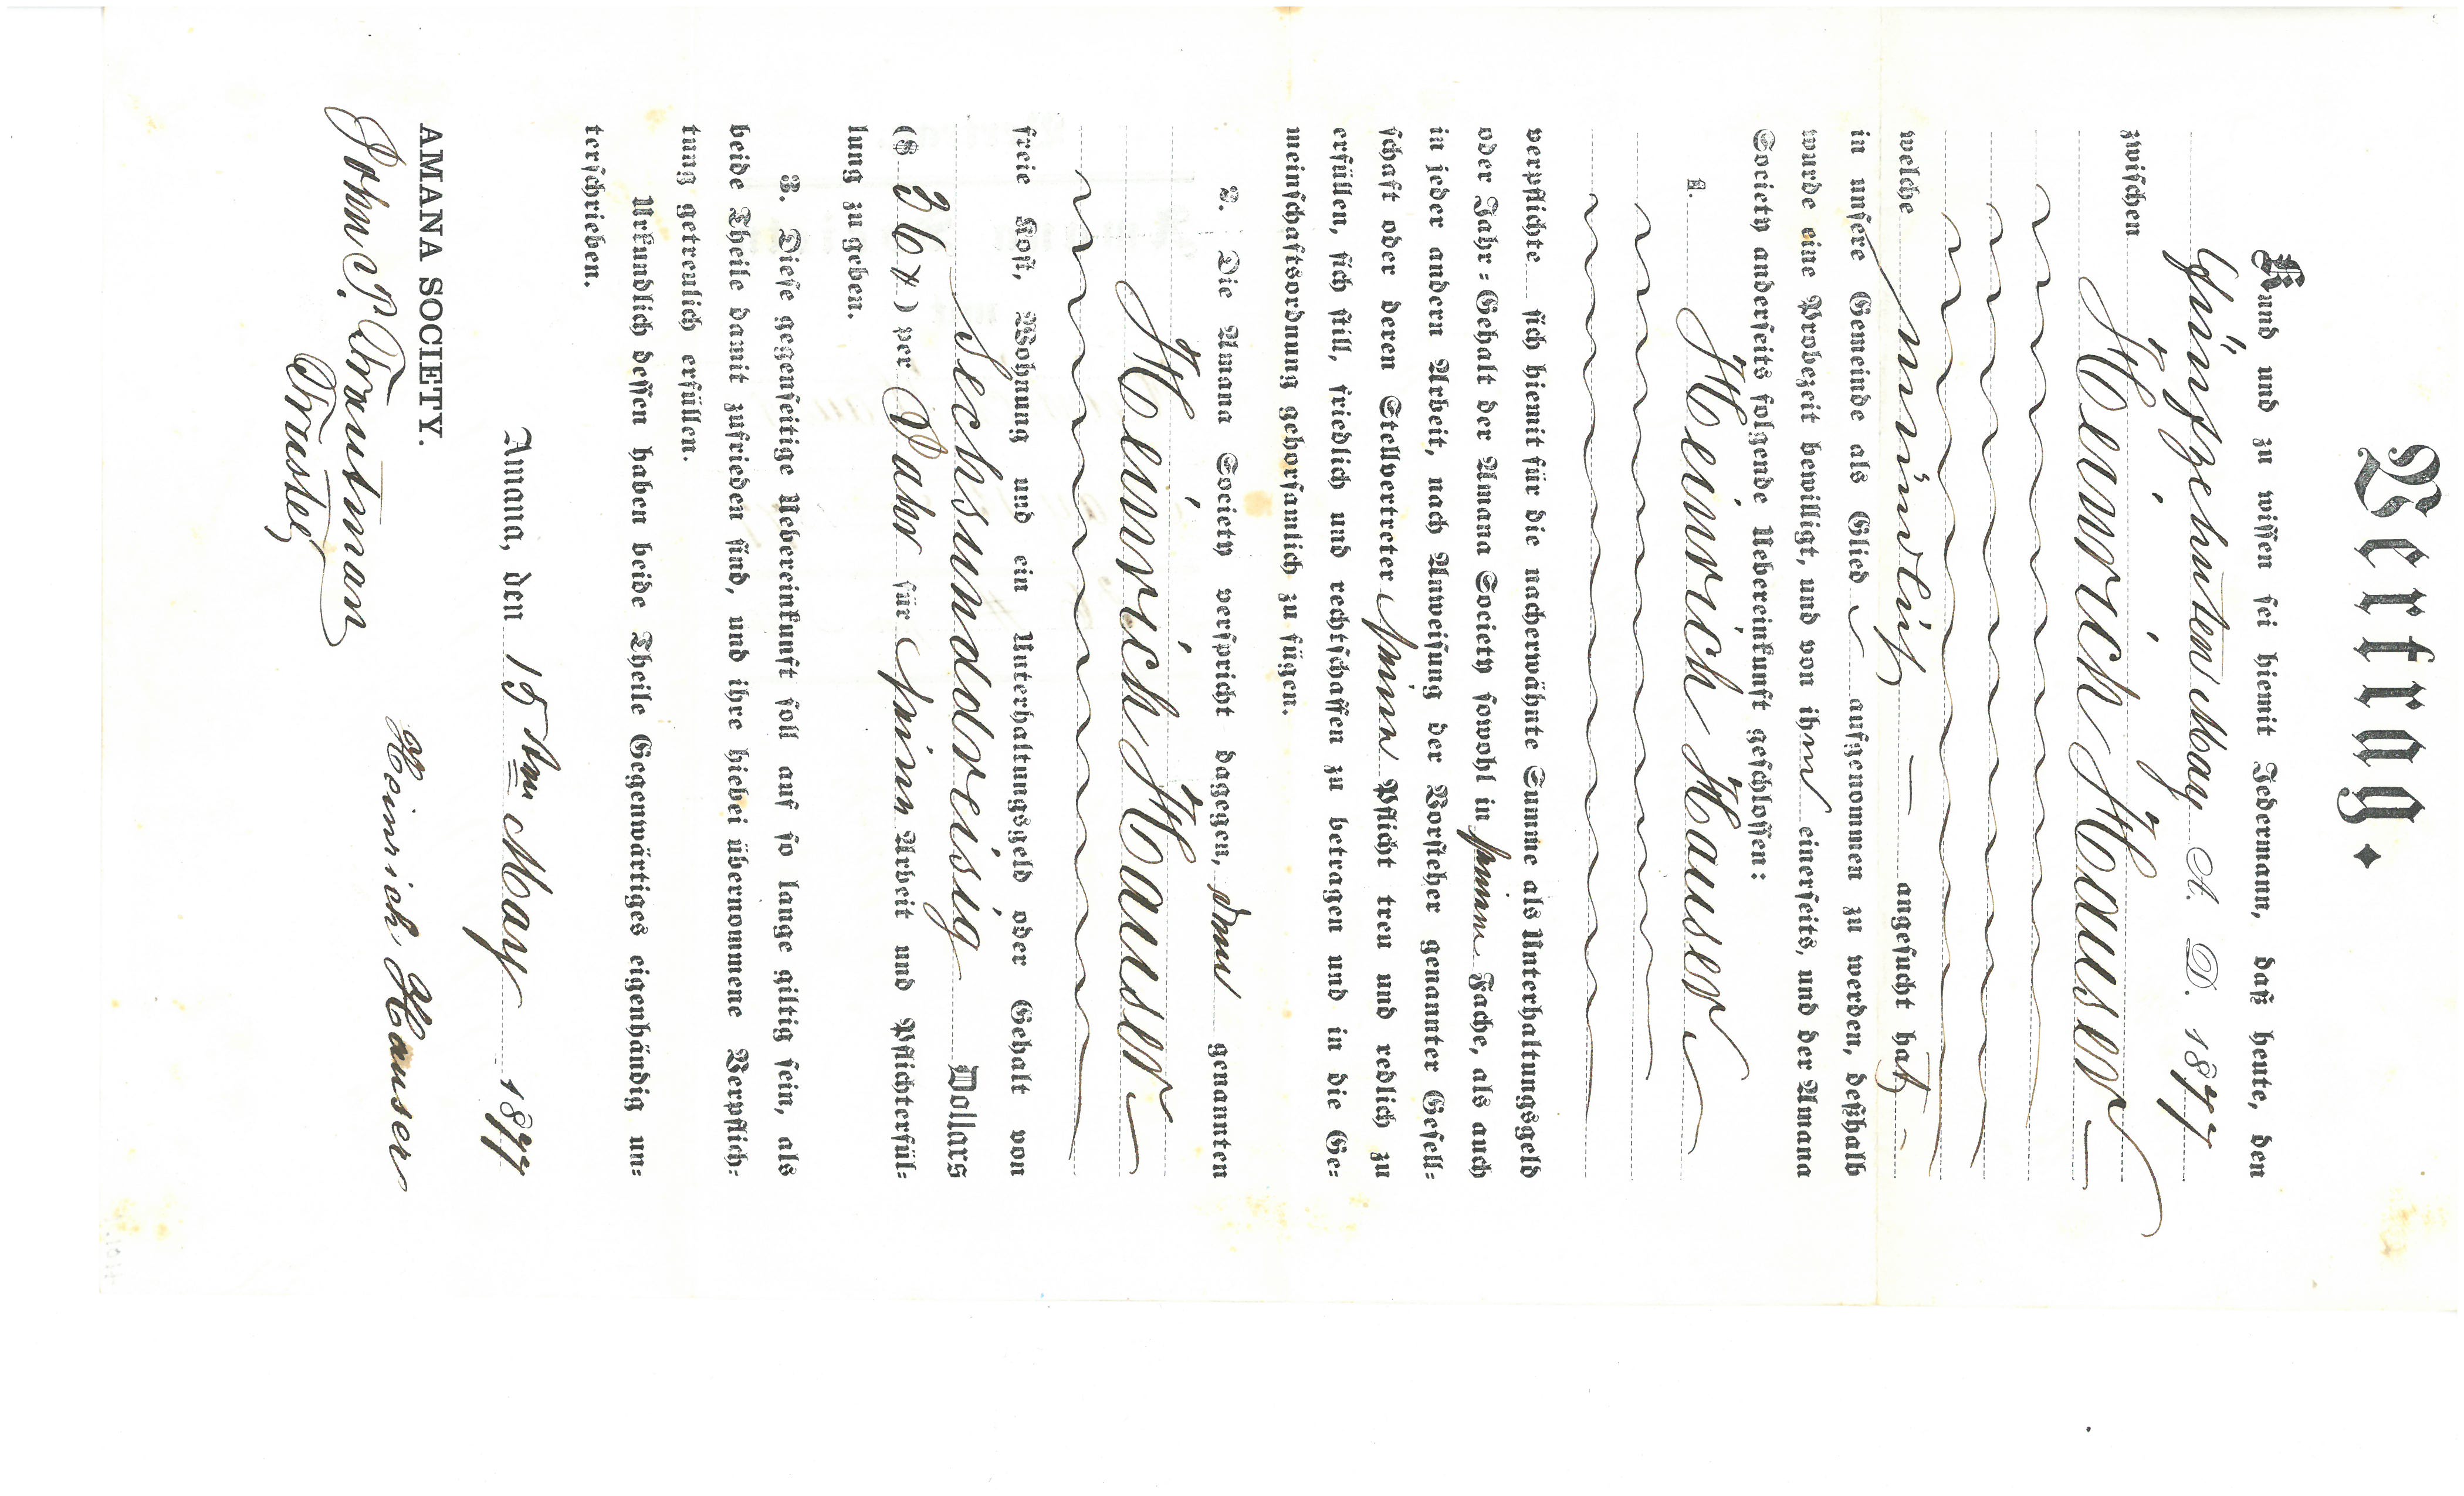 Vertrag.
Kund und zu wissen sei hiemit Jedermann, daß heute, den
Fünfzehnten May A. D. 1877
zwischen
Heinrich Hauser
welche mündlich — angesucht hat
in unsere Gemeinde als Glied aufgenommen zu werden, deßhalb
wurde eine Probezeit bewilligt, und von ihm einerseits, und der Amana
Society anderseits folgende Uebereinkunft geschlossen:
1. Heinrich Hauser
verpflichte sich hiemit für die nacherwähnte Summe als Unterhaltungsgeld
oder Jahr-Gehalt der Amana Society sowohl in seinem Fache, als auch
in jeder andern Arbeit, nach Anweisung der Vorsteher genannter Gesell-
schaft oder deren Stellvertreter seine Pflicht treu und redlich zu
erfüllen, sich still, friedlich und rechtschaffen zu betragen und in die Ge-
meinschaftsordnung gehorsamlich zu fügen.
2. Die Amana Society verspricht dagegen, dem genannten
Heinrich Hauser
freie Kost, Wohnung und ein Unterhaltungsgeld oder Gehalt von
Sechsunddreisig Dollars
($ 36 ) per Jahr für seine Arbeit und Pflichterfül-
lung zu geben.
3. Diese gegenseitige Uebereinkunft soll auf so lange giltig sein, als
beide Theile damit zufrieden sind, und ihre hiebei übernommene Verpflich-
tung getreulich erfüllen.
Urkundlich dessen haben beide Theile Gegenwärtiges eigenhändig un-
terschrieben.
Amana, den 15ten May 1877
AMANA SOCIETY.
Heinrich Hauser
John P. Trautman
Trustee